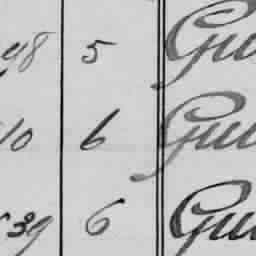 48 5 Gu
10 6 Gu
39 6 Gu